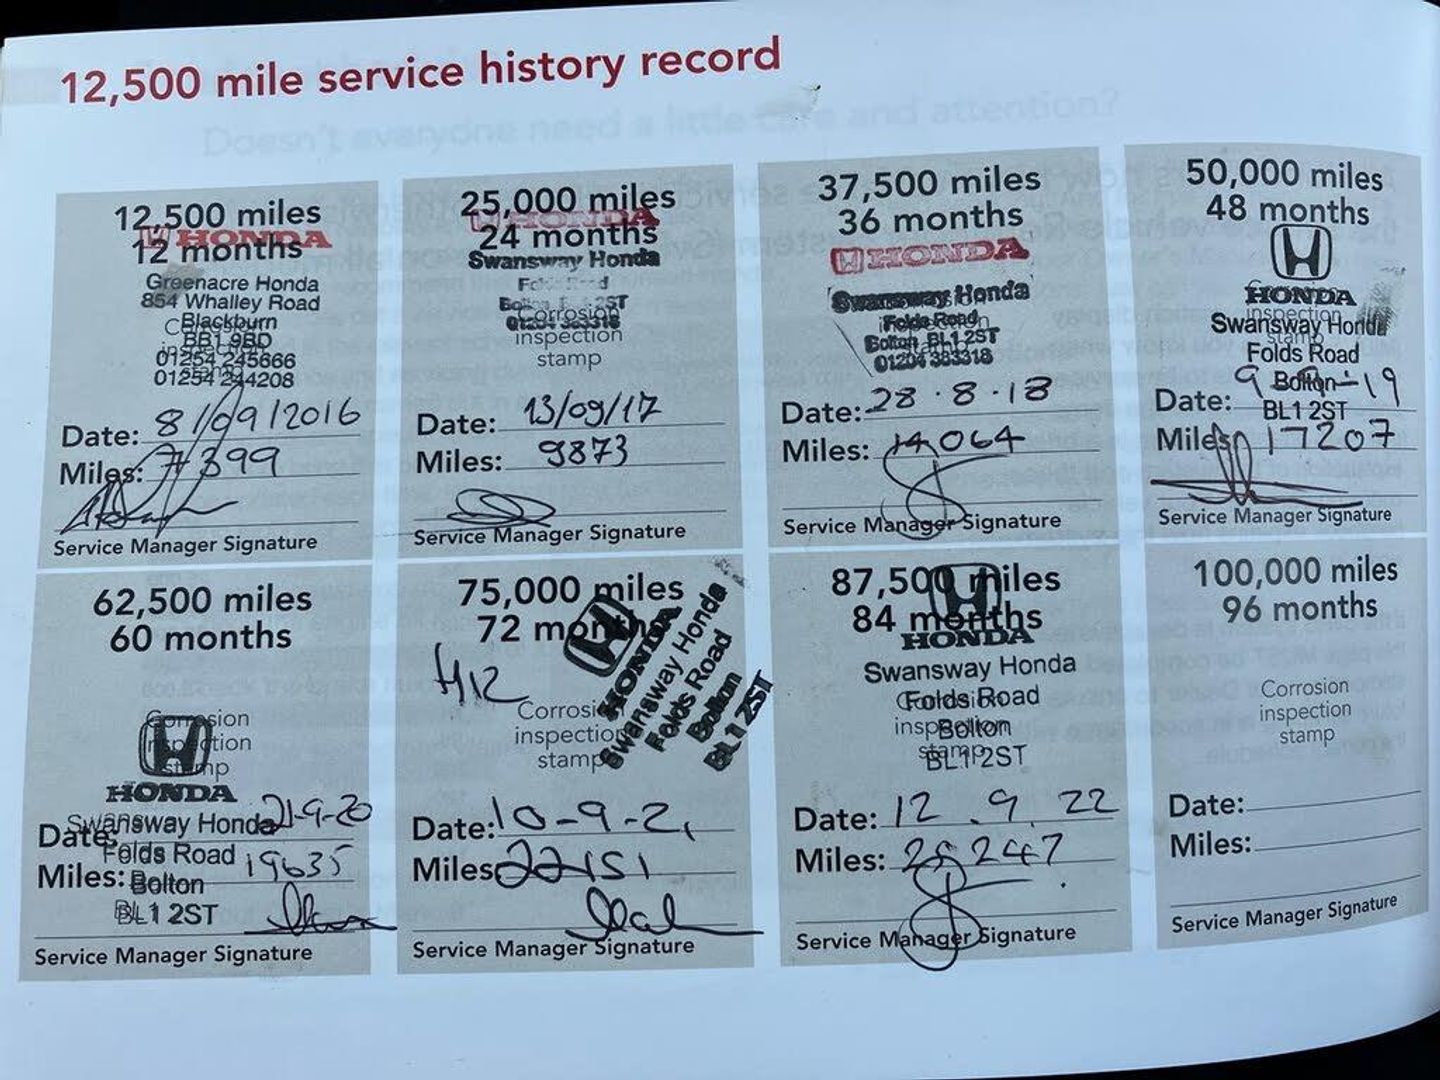 12,500 mile service history record
12,500 miles
12 months
HONDA
Greenacre Honda
854 Whalley Road
Blackburn
BB1 9BD
01254 245666
01254 244208
Date: 8/09/2016
Miles: 7399
Service Manager Signature
25,000 miles
24 months
HONDA
Swansway Honda
Folds Road
Bolton BL1 2ST
01204 383318
Corrosion
inspection
stamp
Date: 13/09/17
Miles: 9873
Service Manager Signature
37,500 miles
36 months
HONDA
Swansway Honda
Folds Road
Bolton BL1 2ST
01204 383318
Date: 28.8.18
Miles: 14064
Service Manager Signature
50,000 miles
48 months
HONDA
inspection
Swansway Honda
Folds Road
Bolton
BL1 2ST
Date: 9-9-19
Miles: 17207
Service Manager Signature
62,500 miles
60 months
Corrosion
inspection
stamp
HONDA
Swansway Honda
Folds Road
Bolton
BL1 2ST
Date: 21-9-20
Miles: 19635
Service Manager Signature
75,000 miles
72 months
HONDA
Swansway Honda
Folds Road
Bolton
BL1 2ST
Corrosion
inspection
stamp
Date: 10-9-21
Miles: 22151
Service Manager Signature
87,500 miles
84 months
HONDA
Swansway Honda
Folds Road
Bolton
BL1 2ST
Corrosion
inspection
stamp
Date: 12.9.22
Miles: 25247
Service Manager Signature
100,000 miles
96 months
Corrosion
inspection
stamp
Date:
Miles:
Service Manager Signature